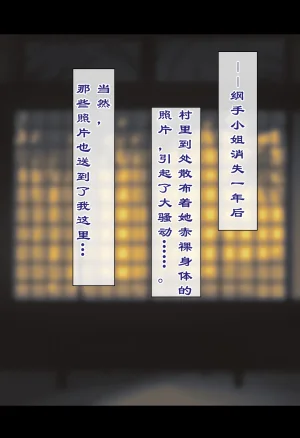 ──纲手小姐消失一年后
村里到处散布着她赤裸身体的
照片，引起了大骚动……。
当然，
那些照片也送到了我这里…